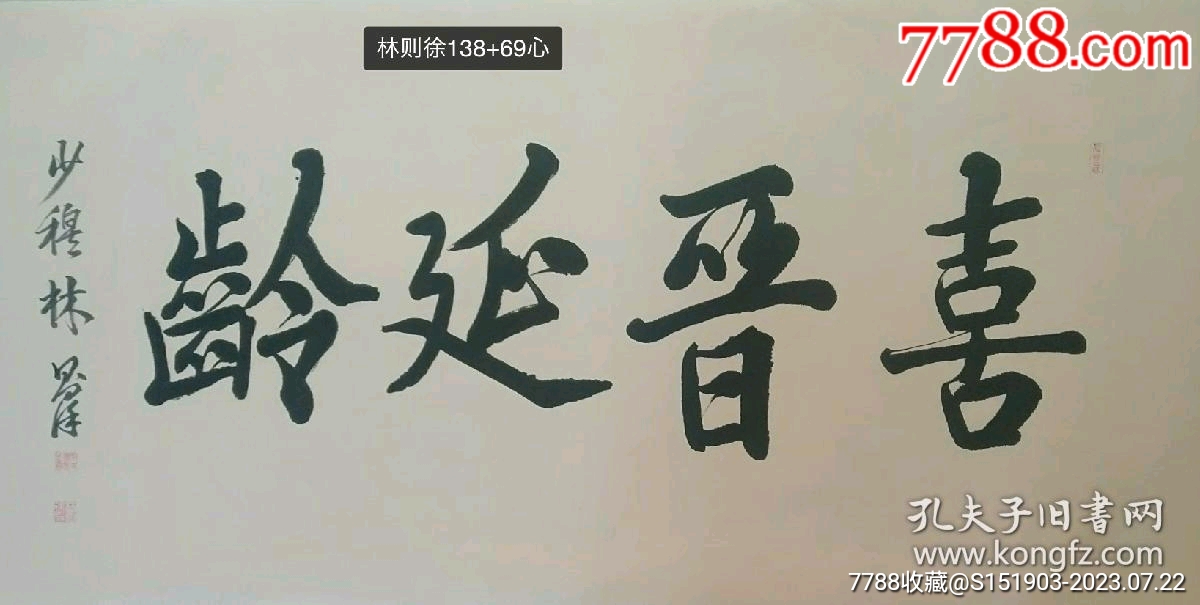 林则徐138+69心
7788.com
喜晉延齡
少穆林則徐
孔夫子旧書网
www.kongfz.com
7788收藏@S151903-2023.07.22